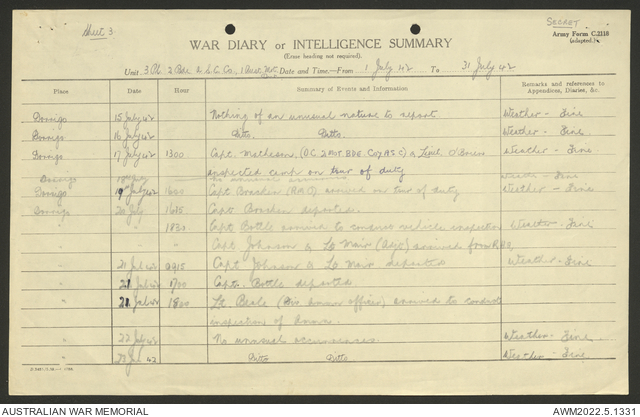 Sheet 3
SECRET
WAR DIARY or INTELLIGENCE SUMMARY
Army Form C.2118
(adapted.)
(Erase heading not required).
Unit 3 Pl. 2 Bde A.S.C. Co. 1 Aust. Mot. Date and Time.—From 1 July 42 To 31 July 42
Place Date Hour Summary of Events and Information Remarks and references to Appendices, Diaries, &c.
Dorrigo 15 July 42 Nothing of an unusual nature to report Weather - Fine
Dorrigo 16 July 42 Ditto Ditto Weather - Fine
Dorrigo 17 July 42 1300 Capt. Matheson, (OC 2 Mot BDE Coy ASC) & Lieut. Weather - Fine
inspected camp on tour of duty
Dorrigo 18 July
Dorrigo 19 July 42 1600 Capt Bracken arrived on tour of duty Weather - Fine
Dorrigo 20 July 1615 Capt Bracken departed.
" 1830 Capt Bottle arrived to conduct vehicle inspection Weather - Fine
" Capt Johnson & Lt Mair (Adjt) arrived from
" 21 July 42 0915 Capt Johnson & Lt Mair departed Weather - Fine
" 21 July 42 1700 Capt. Bottle departed.
" 21 July 42 1800 Lt. Beale (Div ammn officer) arrived to conduct
inspection of Ammn.
" 22 July 42 No unusual occurrences. Weather - Fine
" 23 Jul 42 Ditto Ditto Weather - Fine
AUSTRALIAN WAR MEMORIAL
AWM2022.5.1331